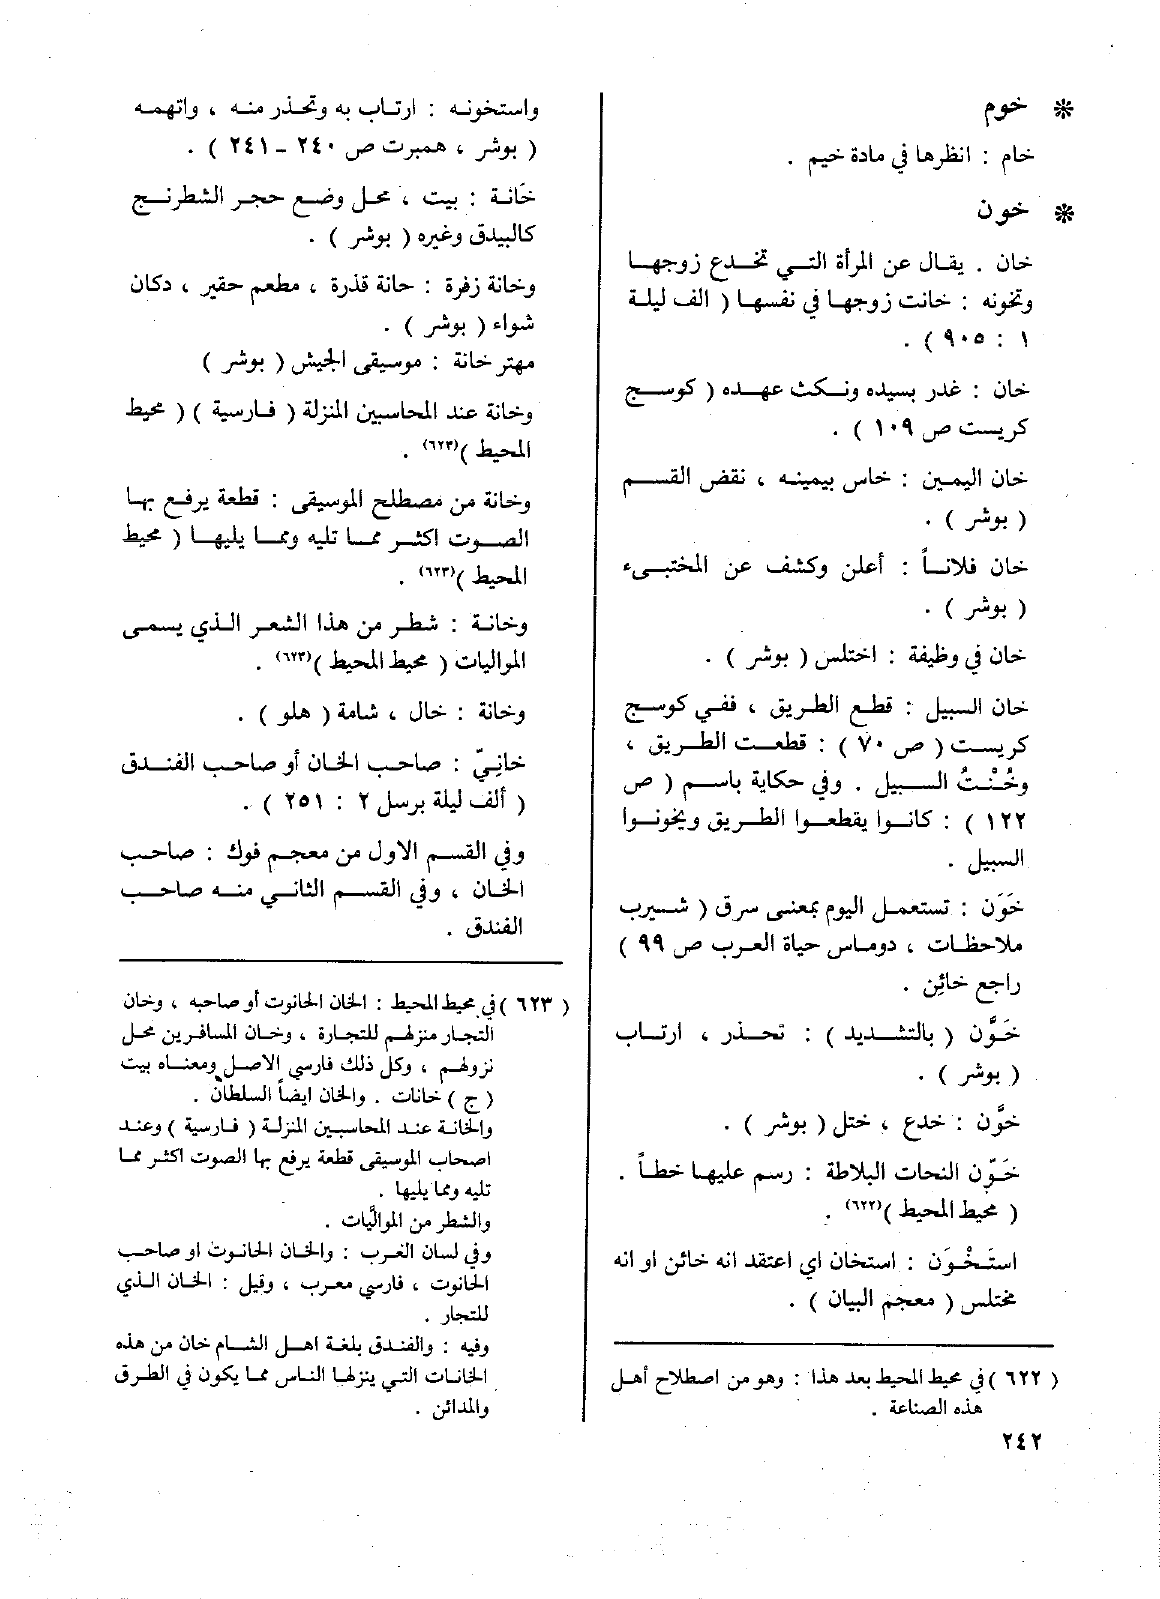 * خوم
خام : انظرها في مادة خيم .
* خون
خان . يقال عن المرأة التي تخدع زوجها
وتخونه : خانت زوجها في نفسها ( الف ليلة
١ : ٩٠٥ ) .
خان : غدر بسيده ونكث عهده ( كوسج
كريست ص ١٠٩ ) .
خان اليمين : خاس بيمينه ، نقض القسم
( بوشر ) .
خان فلاناً : أعلن وكشف عن المختبىء
( بوشر ) .
خان في وظيفة : اختلس ( بوشر ) .
خان السبيل : قطع الطريق ، ففي كوسج
كريست ( ص ٧٠ ) : قطعت الطريق ،
وخُنْتُ السبيل . وفي حكاية باسم ( ص
١٢٢ ) : كانوا يقطعوا الطريق ويخونوا
السبيل .
خَوَن : تستعمل اليوم بمعنى سرق ( شيرب
ملاحظات ، دوماس حياة العرب ص ٩٩ )
راجع خائِن .
خَوَّن ( بالتشديد ) : تحذر ، ارتاب
( بوشر ) .
خوَّن : خدع ، ختل ( بوشر ) .
خَوّن النحات البلاطة : رسم عليها خطاً .
( محيط المحيط )(٦٢٢) .
استَخْوَن : استخان اي اعتقد انه خائن او انه
مختلس ( معجم البيان ) .
( ٦٢٢ ) في محيط المحيط بعد هذا : وهو من اصطلاح أهل
هذه الصناعة .
٢٤٢
واستخونه : ارتاب به وتحذر منه ، واتهمه
( بوشر ، همبرت ص ٢٤٠ - ٢٤١ ) .
خَانة : بيت ، محل وضع حجر الشطرنج
كالبيدق وغيره ( بوشر ) .
وخانة زفرة : حانة قذرة ، مطعم حقير ، دكان
شواء ( بوشر ) .
مهتر خانة : موسيقى الجيش ( بوشر )
وخانة عند المحاسبين المنزلة ( فارسية ) ( محيط
المحيط )(٦٢٣) .
وخانة من مصطلح الموسيقى : قطعة يرفع بها
الصوت اكثر مما تليه ومما يليها ( محيط
المحيط )(٦٢٣) .
وخانة : شطر من هذا الشعر الذي يسمى
المواليات ( محيط المحيط )(٦٢٣) .
وخانة : خال ، شامة ( هلو ) .
خانِيّ : صاحب الخان أو صاحب الفندق
( ألف ليلة برسل ٢ : ٢٥١ ) .
وفي القسم الاول من معجم فوك : صاحب
الخان ، وفي القسم الثاني منه صاحب
الفندق .
( ٦٢٣ ) في محيط المحيط : الخان الحانوت أو صاحبه ، وخان
التجار منزلهم للتجارة ، وخان المسافرين محل
نزولهم ، وكل ذلك فارسي الاصل ومعناه بيت
( ج ) خانات . والخان ايضاً السلطان .
والخانة عند المحاسبين المنزلة ( فارسية ) وعند
اصحاب الموسيقى قطعة يرفع بها الصوت اكثر مما
تليه ومما يليها .
والشطر من المواليَّات .
وفي لسان العرب : والخان الحانوت او صاحب
الحانوت ، فارسي معرب ، وقيل : الخان الذي
للتجار .
وفيه : والفندق بلغة اهل الشام خان من هذه
الخانات التي ينزلها الناس مما يكون في الطرق
والمدائن .